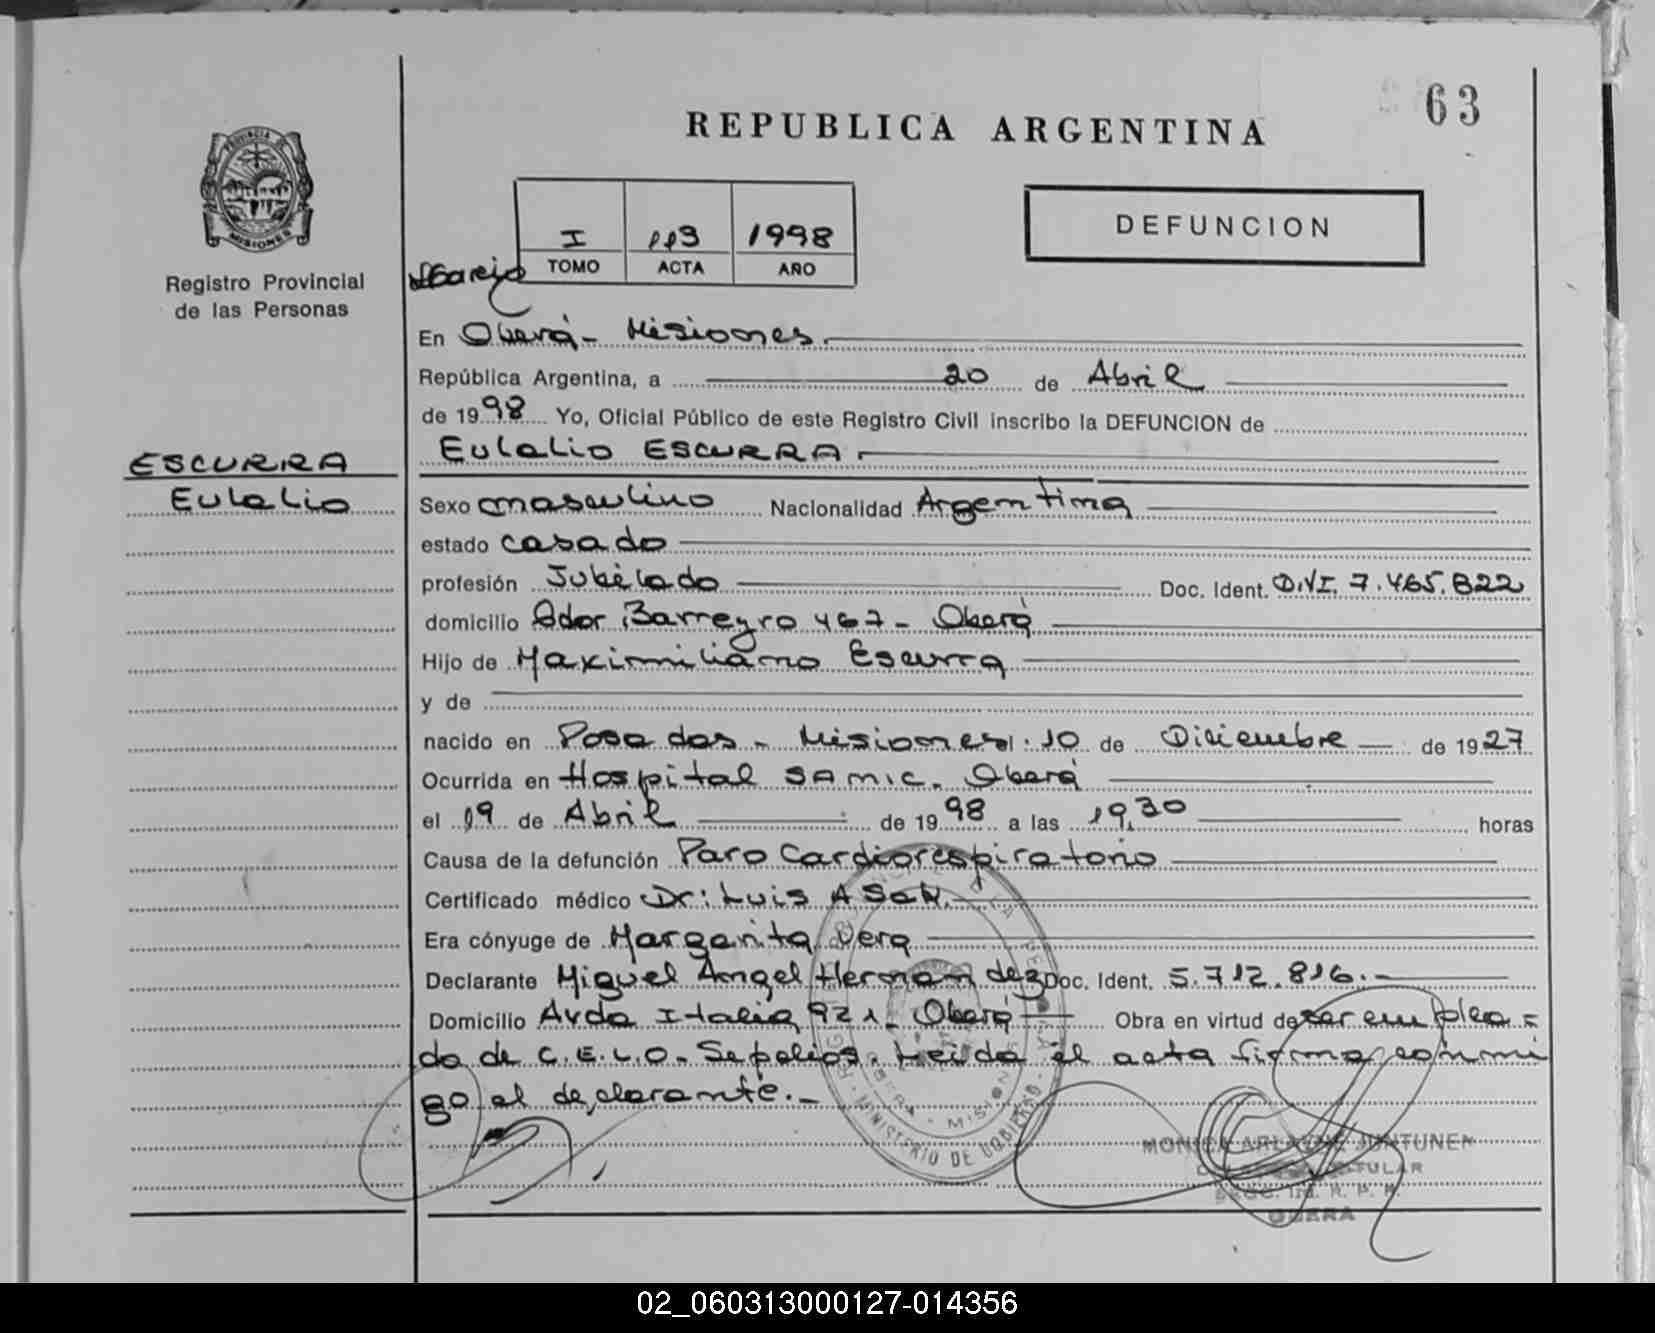 63
REPUBLICA ARGENTINA
PROVINCIA DE
MISIONES
Registro Provincial
de las Personas
I 119 1998
TOMO ACTA AÑO
DEFUNCION
En Oberá - Misiones.
República Argentina, a 20 de Abril
de 1998 Yo, Oficial Público de este Registro Civil inscribo la DEFUNCION de
ESCURRA
Eulalio
Eulalio ESCURRA.
Sexo masculino Nacionalidad Argentina
estado casado
profesión Jubilado Doc. Ident. D.N.I. 7.465.822
domicilio Ador Barreyro 467 - Oberá
Hijo de Maximiliano Escurra
y de
nacido en Posadas - Misiones el 10 de Diciembre de 1927
Ocurrida en Hospital SAMIC. Oberá
el 19 de Abril de 1998 a las 19,30 horas
Causa de la defunción Paro Cardiorespiratorio
Certificado médico Dr: Luis A
Era cónyuge de Margarita Vera
Declarante Miguel Angel Hernandez Doc. Ident. 5.712.816.-
Domicilio Avda Italia 921 - Oberá Obra en virtud de ser emplea=
do de C.E.L.O. Sepelios. Leída el acta firma conmi
go el declarante.-
MINISTERIO DE GOBIERNO
MISIONES
MONICA ARLAYNE JUNTUNEN
TITULAR
R. P. P.
OBERA
02_060313000127-014356